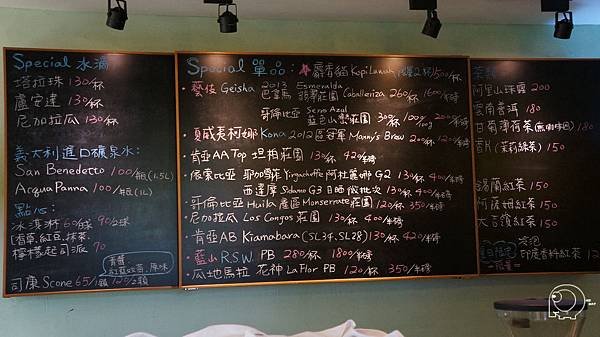 Special 水滴
塔拉珠 130/杯
盧安達 130/杯
尼加拉瓜 130/杯
義大利進口礦泉水:
San Benedetto 100/瓶(1.5L)
Acqua Panna 100/瓶(1L)
點心:
冰淇淋 60/球 90/2球
[香草,紅豆,抹茶
檸檬起司派 70
司康 Scone 65/1顆 120/2顆
Special 單品:
麝香貓 Kopi Luwak 1500/杯
藝伎 Geisha 2013 Esmeralda
巴拿馬 翡翠莊園 Caballeriza 260/杯 1600/半磅
哥倫比亞 Cerro Azul
藍色山藝莊園 300/杯
夏威夷柯娜 Kona 2012 區冠軍 Manny's Brew 200/杯
肯亞 AA Top 坦柏莊園 130/杯 420/半磅
依索比亞 耶加雪菲 Yirgacheffe 阿杜麗娜 G2 130/杯 400/半磅
西達摩 Sidamo G3 日曬 130/杯 400/半磅
哥倫比亞 Huila 產區 Monserrate 莊園 120/杯 350/半磅
尼加拉瓜 Los Congos 莊園 130/杯 400/半磅
肯亞 AB Kiamabara (SL34, SL28) 130/杯 420/半磅
藍山 R.S.W. PB 280/杯 1800/半磅
瓜地馬拉 花神 La Flor PB 120/杯 350/半磅
阿里山珠露 200
雲南普洱 180
甘菊薄荷茶(無咖啡因) 180
香片(茉莉綠茶) 150
錫蘭紅茶 150
阿薩姆紅茶 150
大吉嶺紅茶 150
冷泡
印度香料紅茶